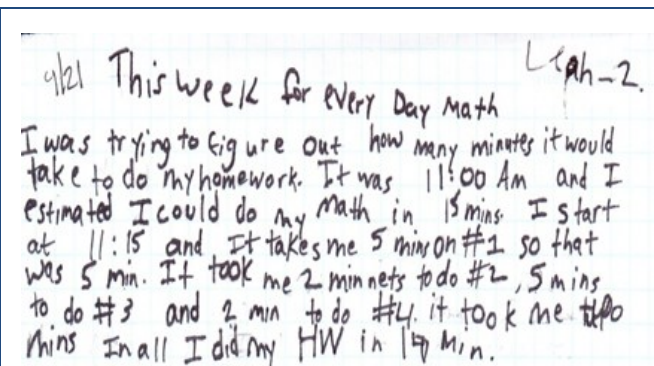 9/21 This week for every Day Math Leah-2.
I was trying to figure out how many minutes it would
take to do my homework. It was 11:00 Am and I
estimated I could do my Math in 15 mins. I start
at 11:15 and It takes me 5 mins on #1 so that
was 5 min. It took me 2 minnets to do #2, 5 mins
to do #3 and 2 min to do #4. it took me
mins In all I did my HW in min.